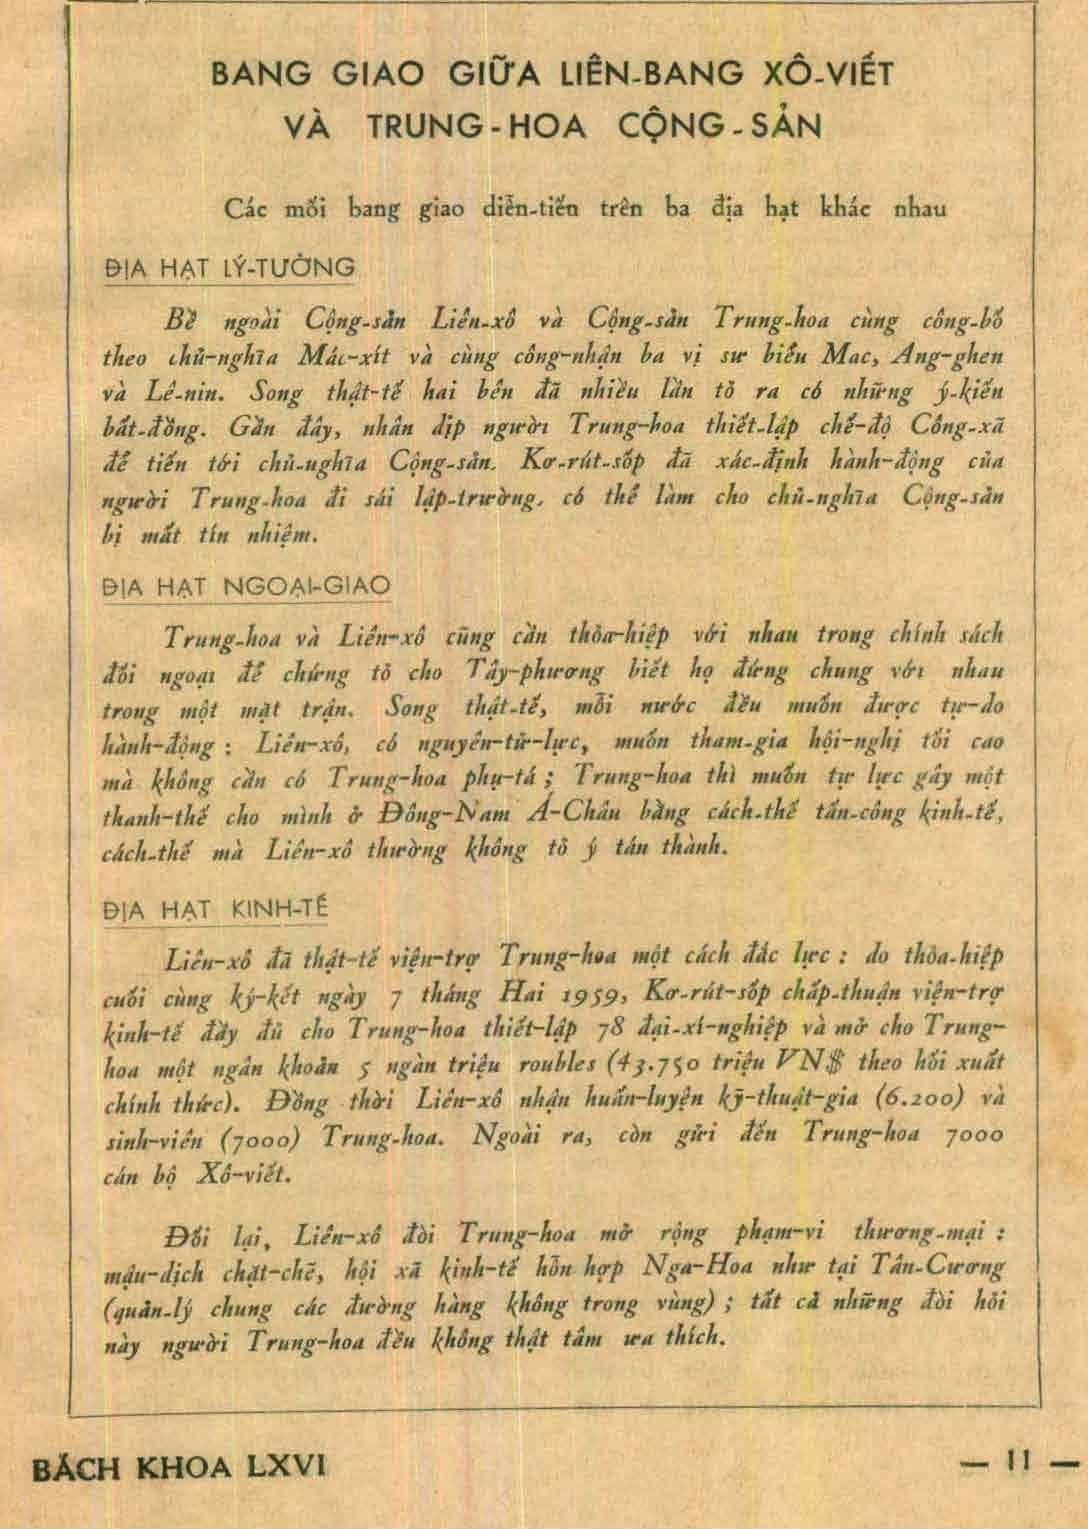 BANG GIAO GIỮA LIÊN-BANG XÔ-VIẾT
VÀ TRUNG-HOA CỘNG-SẢN
Các mối bang giao diễn-tiến trên ba địa hạt khác nhau
ĐỊA HẠT LÝ-TƯỞNG
Bề ngoài Cộng-sản Liên-xô và Cộng-sản Trung-hoa cùng công-bố
theo chủ-nghĩa Mác-xít và cùng công-nhận ba vị sư biểu Mac, Ang-ghen
và Lê-nin. Song thật-tế hai bên đã nhiều lần tỏ ra có những ý-kiến
bất-đồng. Gần đây, nhân dịp người Trung-hoa thiết-lập chế-độ Công-xã
để tiến tới chủ-nghĩa Cộng-sản. Kơ-rút-sốp đã xác-định hành-động của
người Trung-hoa đi sái lập-trường, có thể làm cho chủ-nghĩa Cộng-sản
bị mất tín nhiệm.
ĐỊA HẠT NGOẠI-GIAO
Trung-hoa và Liên-xô cũng cần thỏa-hiệp với nhau trong chính sách
đối ngoại để chứng tỏ cho Tây-phương biết họ đứng chung với nhau
trong một mặt trận. Song thật-tế, mỗi nước đều muốn được tự-do
hành-động : Liên-xô, có nguyên-tử-lực, muốn tham-gia hội-nghị tối cao
mà không cần có Trung-hoa phụ-tá ; Trung-hoa thì muốn tự lực gây một
thanh-thế cho mình ở Đông-Nam Á-Châu bằng cách-thế tấn-công kinh-tế,
cách-thế mà Liên-xô thường không tỏ ý tán thành.
ĐỊA HẠT KINH-TẾ
Liên-xô đã thật-tế viện-trợ Trung-hoa một cách đắc lực : do thỏa-hiệp
cuối cùng ký-kết ngày 7 tháng Hai 1959, Kơ-rút-sốp chấp-thuận viện-trợ
kinh-tế đầy đủ cho Trung-hoa thiết-lập 78 đại-xí-nghiệp và mở cho Trung-
hoa một ngân khoản 5 ngàn triệu roubles (43.750 triệu VN$ theo hối xuất
chính thức). Đồng thời Liên-xô nhận huấn-luyện kỹ-thuật-gia (6.200) và
sinh-viên (7000) Trung-hoa. Ngoài ra, còn gửi đến Trung-hoa 7000
cán bộ Xô-viết.
Đổi lại, Liên-xô đòi Trung-hoa mở rộng phạm-vi thương-mại :
mậu-dịch chặt-chẽ, hội xã kinh-tế hỗn hợp Nga-Hoa như tại Tân-Cương
(quản-lý chung các đường hàng không trong vùng) ; tất cả những đòi hỏi
này người Trung-hoa đều không thật tâm ưa thích.
BÁCH KHOA LXVI
— 11 —